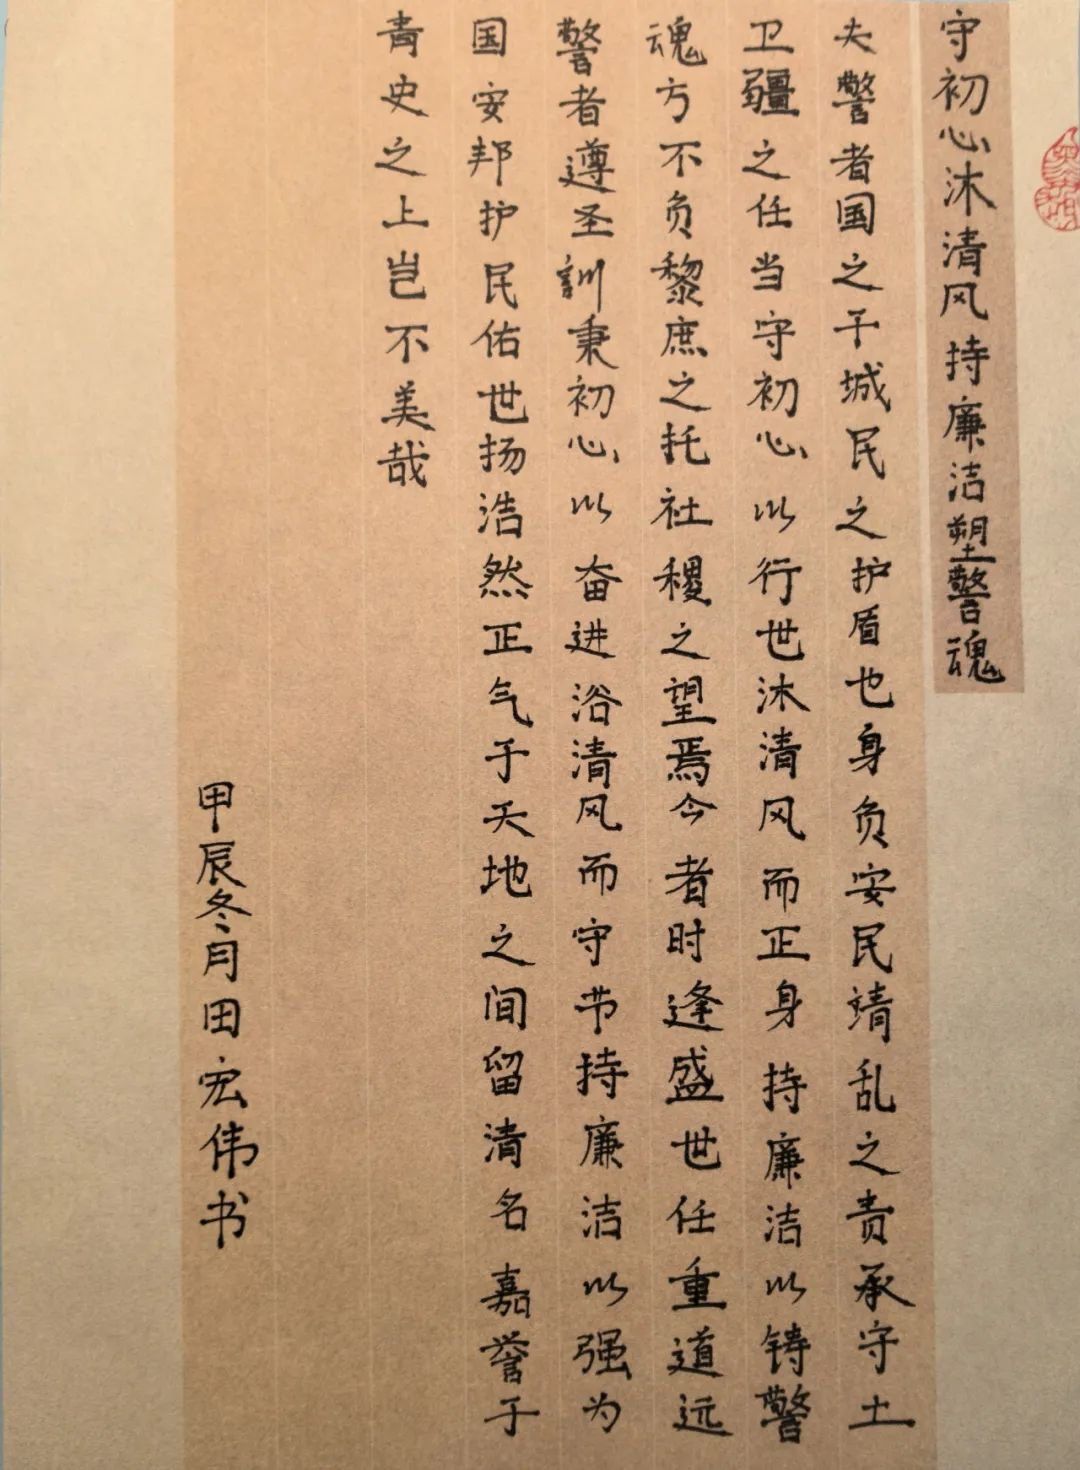 守初心沐清风持廉洁塑警魂
夫警者国之干城民之护盾也身负安民靖乱之责承守土
卫疆之任当守初心以行世沐清风而正身持廉洁以铸警
魂方不负黎庶之托社稷之望焉今者时逢盛世任重道远
警者遵圣訓秉初心以奋进浴清风而守节持廉洁以强为
国安邦护民佑世扬浩然正气于天地之间留清名嘉誉于
青史之上岂不美哉
甲辰冬月田宏伟书